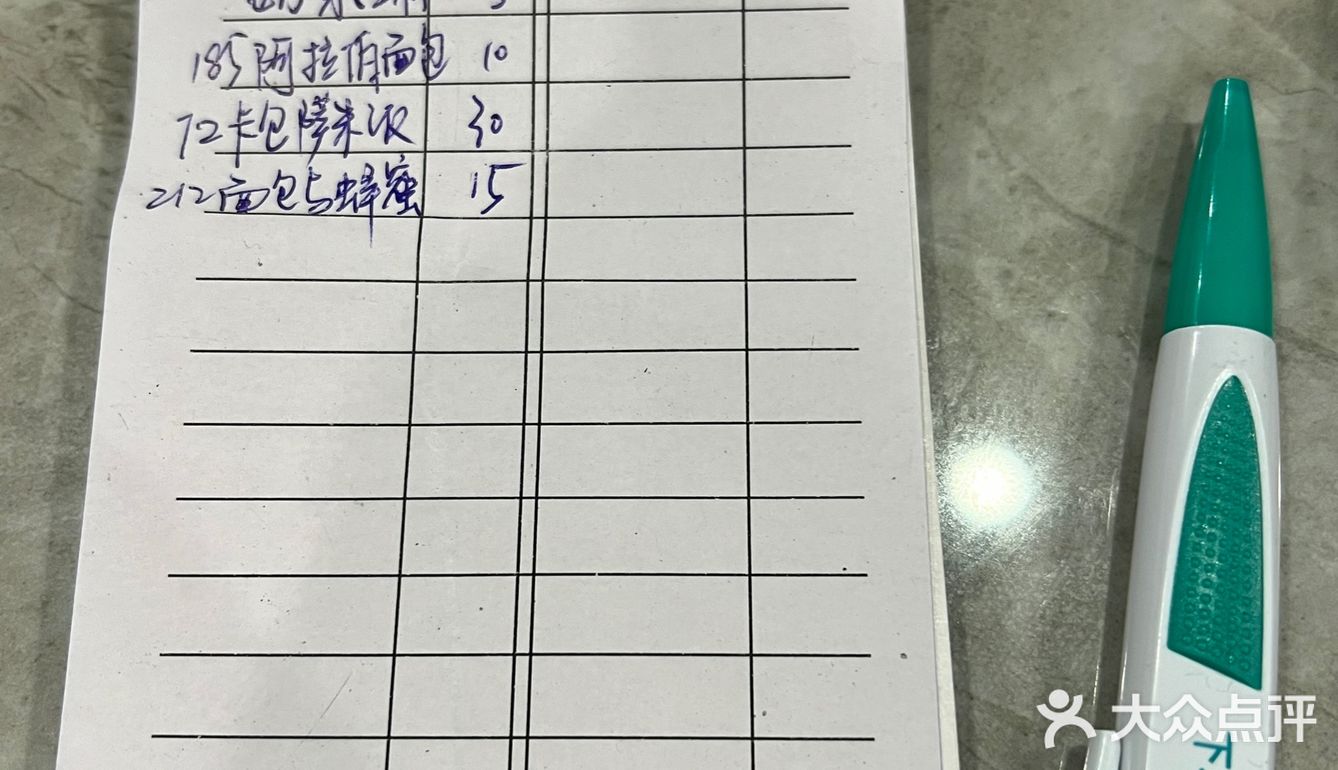 185阿拉伯面包 10
72卡包 30
212面包与蜂蜜 15
大众点评
下